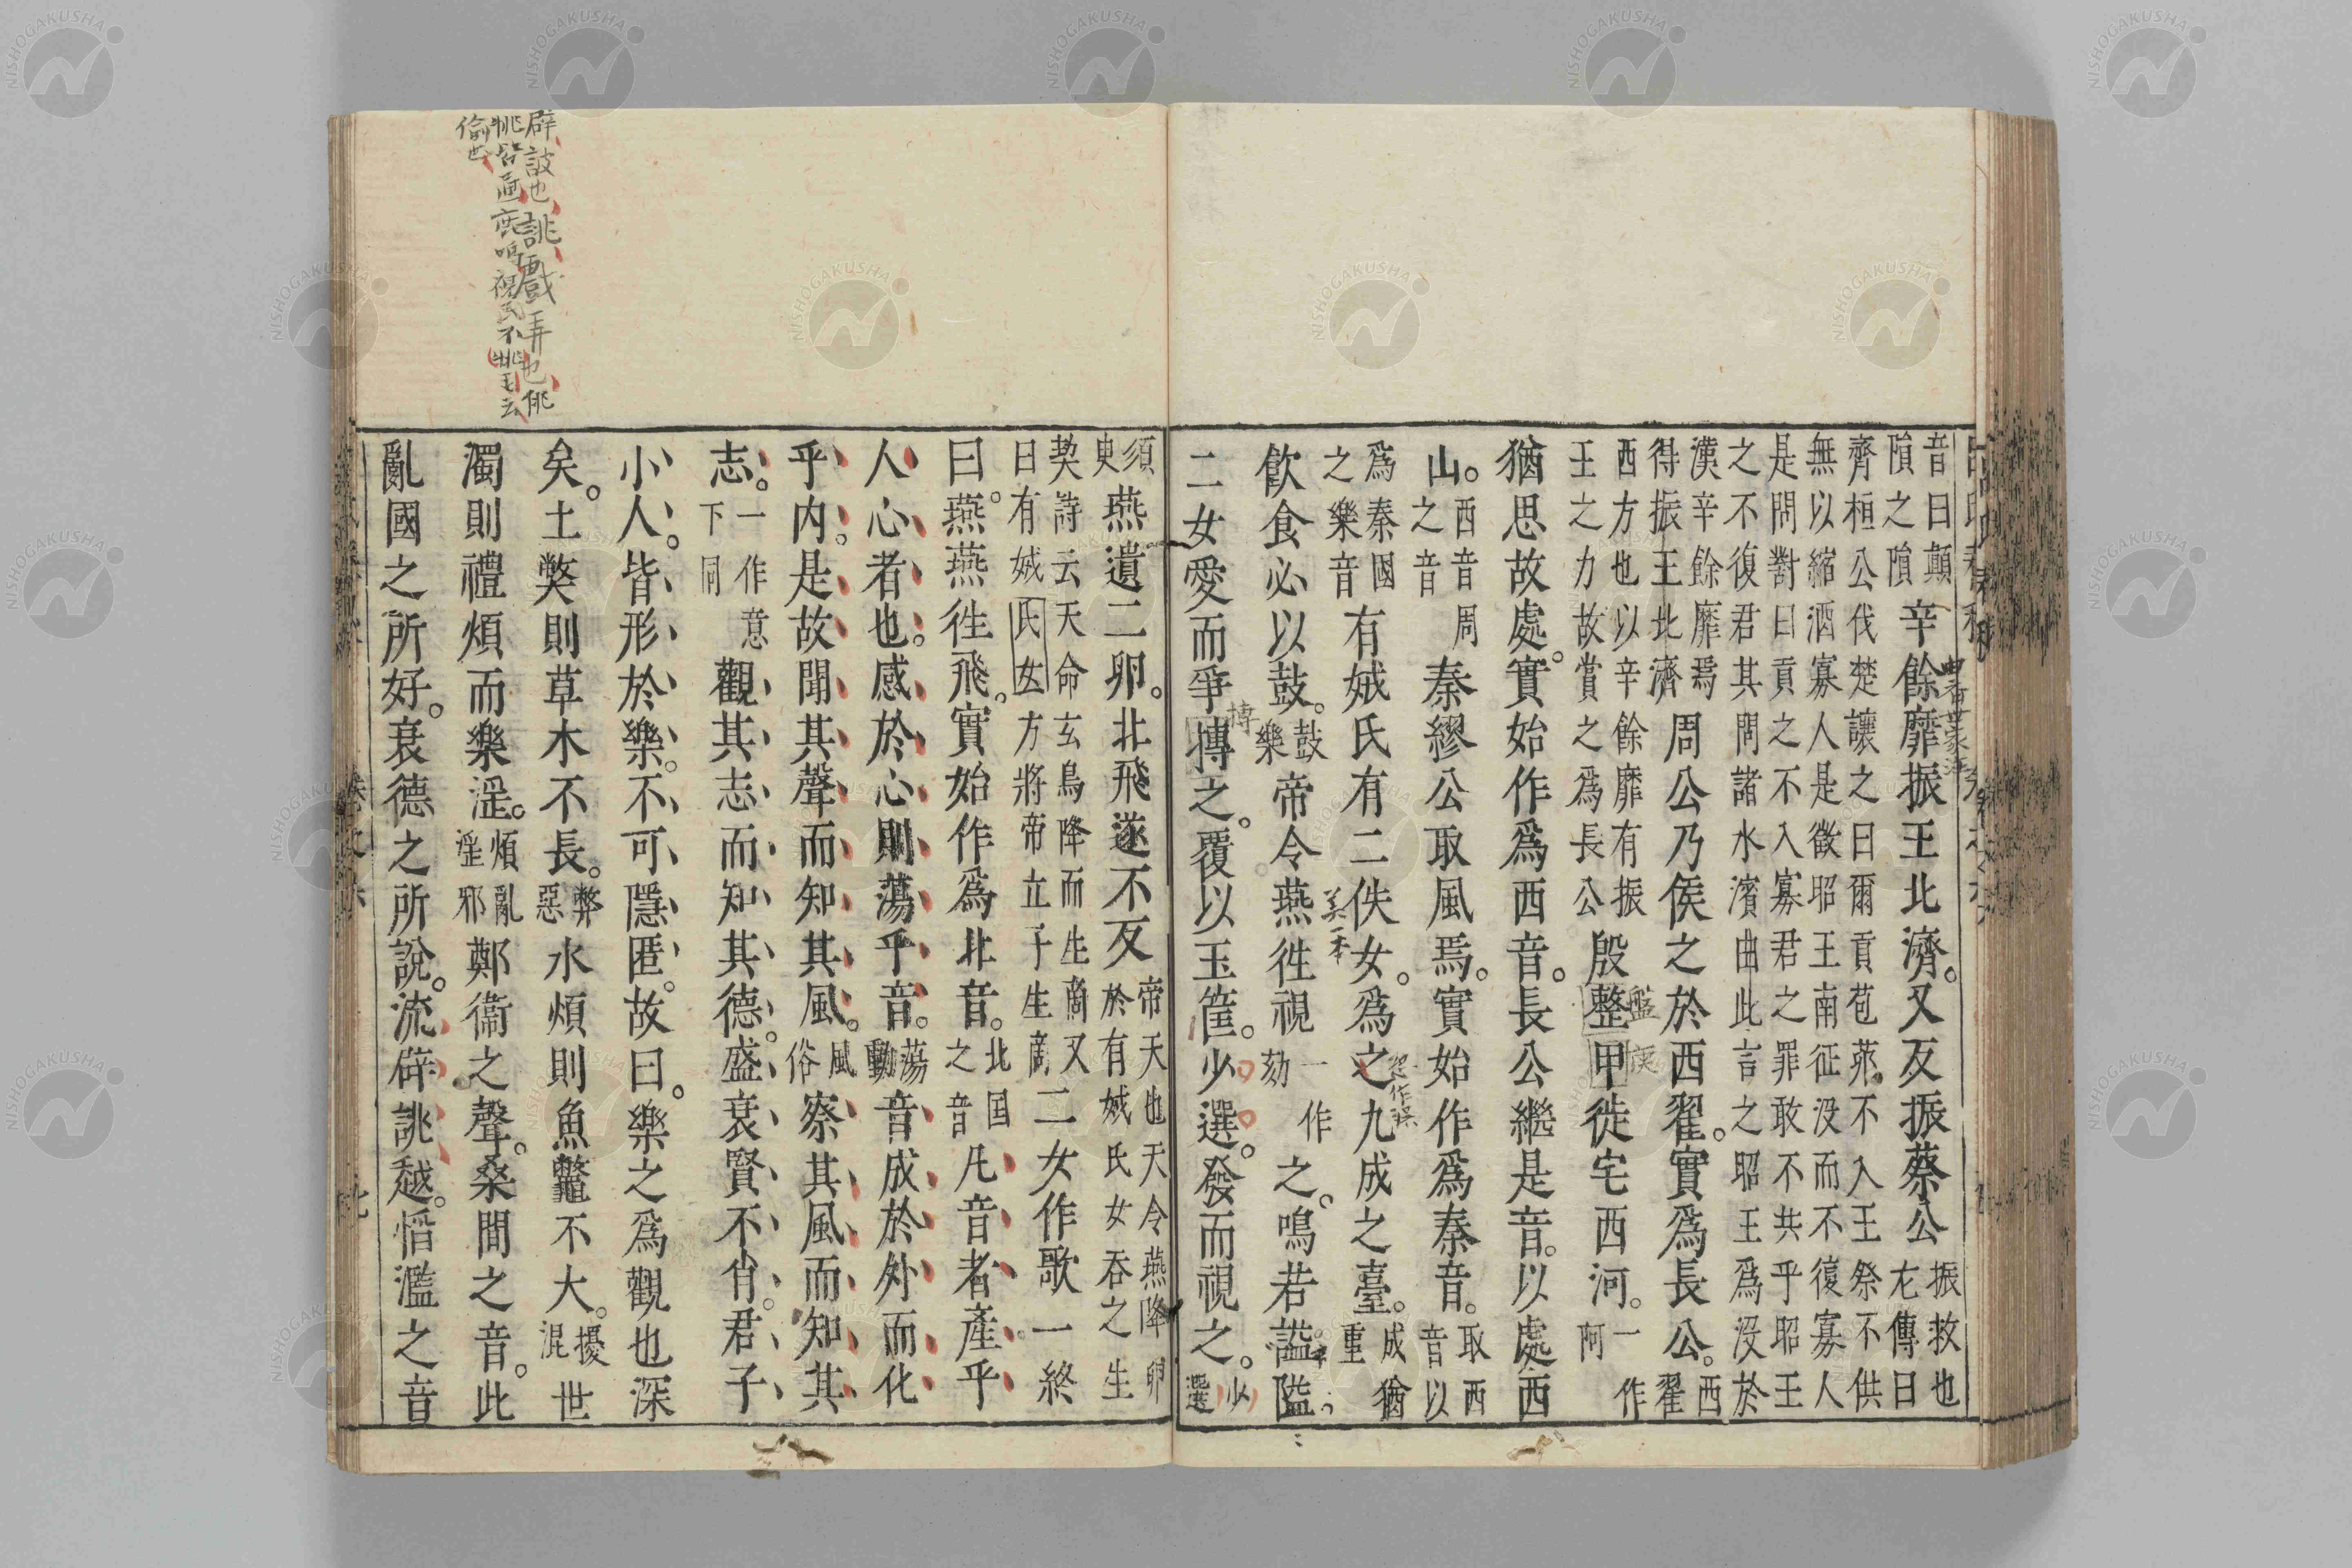 音曰顛
隕之隕辛餘靡振王北濟。又反振蔡公振救也
左傳曰
齊桓公伐楚讓之曰爾貢苞茅不入王祭不供
無以縮酒寡人是徵昭王南征没而不復寡人
是問對曰貢之不入寡君之罪敢不共乎昭王
之不復君其問諸水濱由此言之昭王爲没於
漢辛餘靡焉
得振王北濟周公乃侯之於西翟。實爲長公。西
翟
西方也以辛餘靡有振
王之力故賞之爲長公殷整甲徙宅西河。一作
阿
猶思故處。實始作爲西音。長公繼是音。以處西
山。西音周
之音秦繆公取風焉。實始作爲秦音。取西
音以
爲秦國
之樂音有娀氏有二佚女。爲之九成之臺。成猶
重
飲食必以鼓。鼓
樂帝令燕往視一作
劾之。鳴若謚隘
二女愛而爭搏之。覆以玉筐。少選。發而視之。少
選
須
臾燕遺二卵。北飛遂不反帝天也天令燕降卵
於有娀氏女吞之生
契詩云天命玄鳥降而生商又
曰有娀氏女方將帝立子生商二女作歌一終
曰。燕燕往飛。實始作爲北音。北国
之音凡音者產乎
人心者也。感於心則蕩乎音。蕩
動音成於外而化
乎内。是故聞其聲而知其風。風
俗察其風而知其
志。一作意
下同觀其志而知其德。盛衰賢不肖。君子
小人。皆形於樂。不可隱匿。故曰。樂之爲觀也深
矣。土獘則草木不長。弊
惡水煩則魚鼈不大。擾
混世
濁則禮煩而樂淫。煩亂
淫邪鄭衞之聲。桑間之音。此
亂國之所好。衰德之所說。流辟誂越。慆濫之音
辟詖也誂戲弄也佻
恌皆通鹿鳴視民不恌毛云
偷也